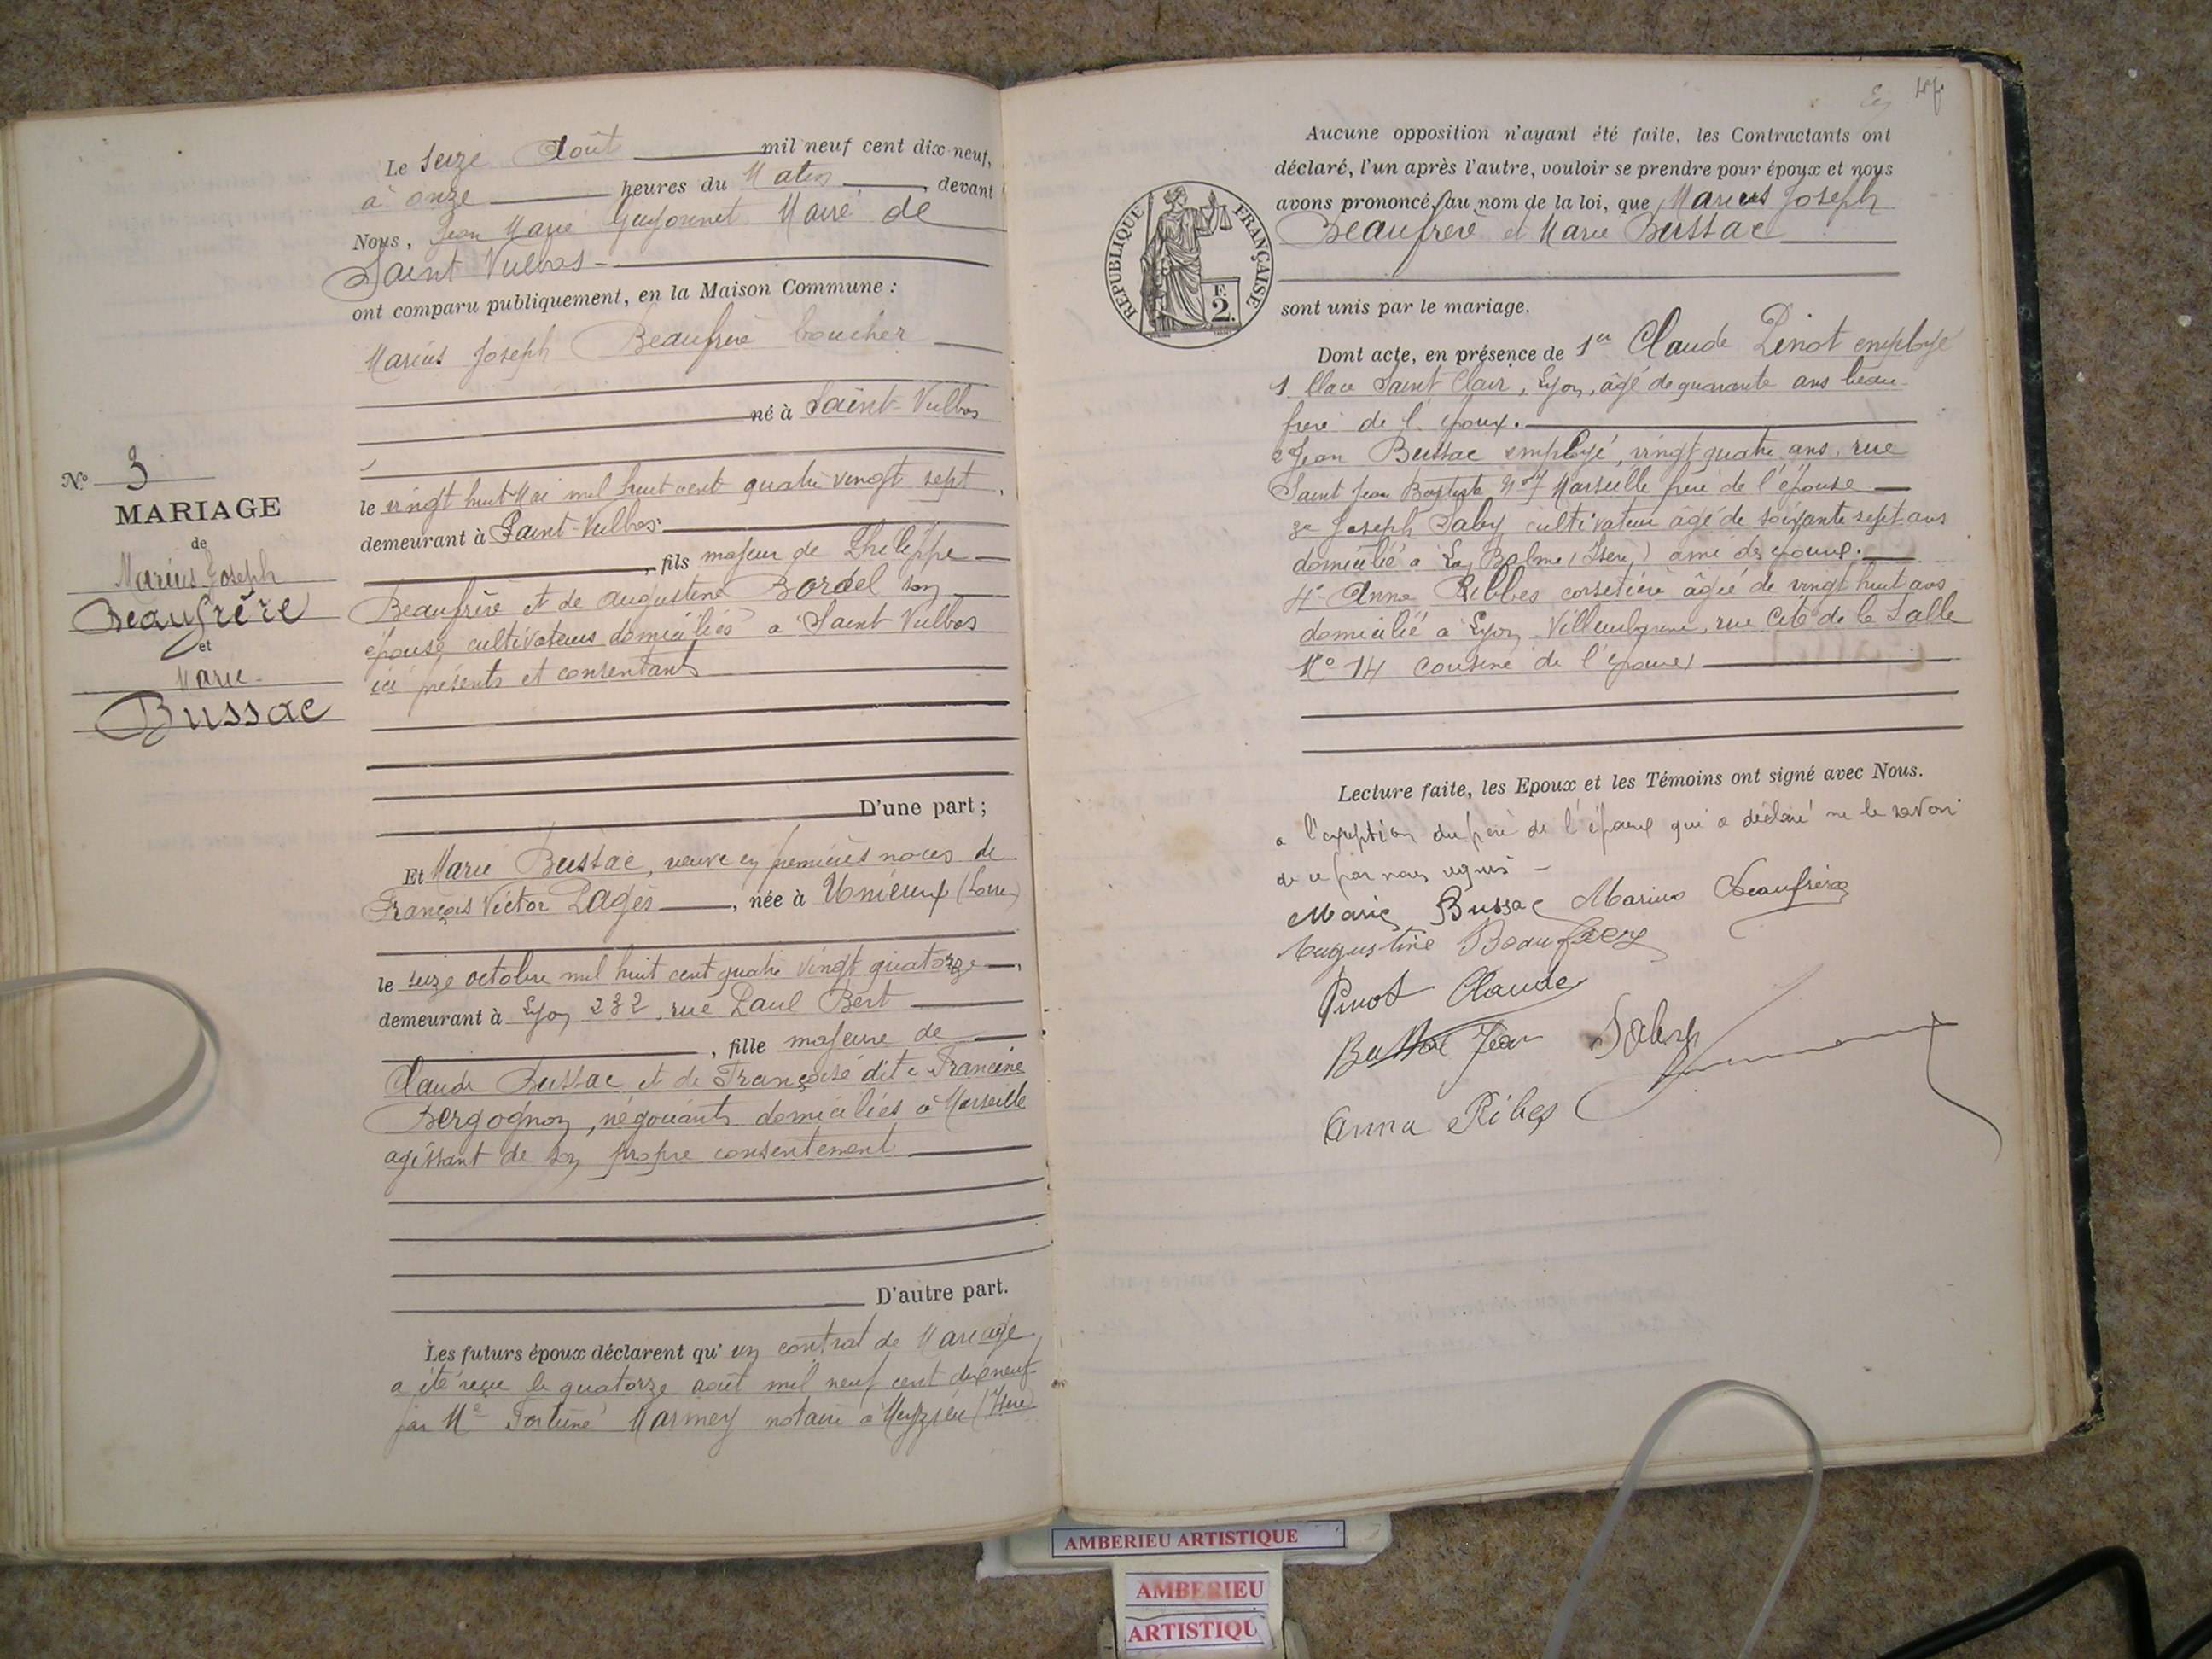 Le Seize Août mil neuf cent dix-neuf,
à onze heures du Matin, devant
Nous, Jean Marie Guyonnet Maire de
Saint Vulbas
ont comparu publiquement, en la Maison Commune :
Marius Joseph Beaufrère boucher
né à Saint-Vulbas
le vingt huit Mai mil huit cent quatre vingt sept,
demeurant à Saint-Vulbas
, fils majeur de Philippe
Beaufrère et de Augustine Bordel son
épouse cultivateurs domiciliés à Saint Vulbas
ici présents et consentants
D'une part ;
No 3
MARIAGE
de
Marius Joseph
Beaufrère
et
Marie
Bussac
Et Marie Bussac, veuve en premières noces de
François Victor Pagès, née à Unieux (Loire)
le seize octobre mil huit cent quatre vingt quatorze,
demeurant à Lyon 232, rue Paul Bert
, fille majeure de
Claude Bussac et de Françoise dite Francine
Bergognon, négociants domiciliés à Marseille
agissant de son propre consentement
D'autre part.
Les futurs époux déclarent qu'un contrat de Mariage
a été reçu le quatorze août mil neuf cent dix neuf
par Me Fortuné Marmey notaire à Meyzieu (Isère)
47
Aucune opposition n'ayant été faite, les Contractants ont
déclaré, l'un après l'autre, vouloir se prendre pour époux et nous
avons prononcé, au nom de la loi, que Marius Joseph
Beaufrère et Marie Bussac
REPUBLIQUE FRANÇAISE
F.
2.
sont unis par le mariage.
Dont acte, en présence de 1er Claude Pinot employé
1 Place Saint Clair, Lyon, âgé de quarante ans beau-
frère de l'époux.
2e Jean Bussac employé, vingt quatre ans, rue
Saint Jean Baptiste No 7 Marseille frère de l'épouse
3e Joseph Saby cultivateur âgé de soixante sept ans
domicilié à La Balme (Isère) ami des époux.
4e Anna Ribbes corsetière âgée de vingt huit ans
domicilié à Lyon Villeurbanne, rue Cité de la Salle
No 14 cousine de l'époux
Lecture faite, les Epoux et les Témoins ont signé avec Nous.
a l'exception du père de l'époux qui a déclaré ne le savoir
de ce par nous requis
Marie Bussac Marius Beaufrère
Augustine Beaufrère
Pinot Claude
Bussac Jean Saby
Anna Ribes
AMBERIEU ARTISTIQUE
AMBERIEU
ARTISTIQU